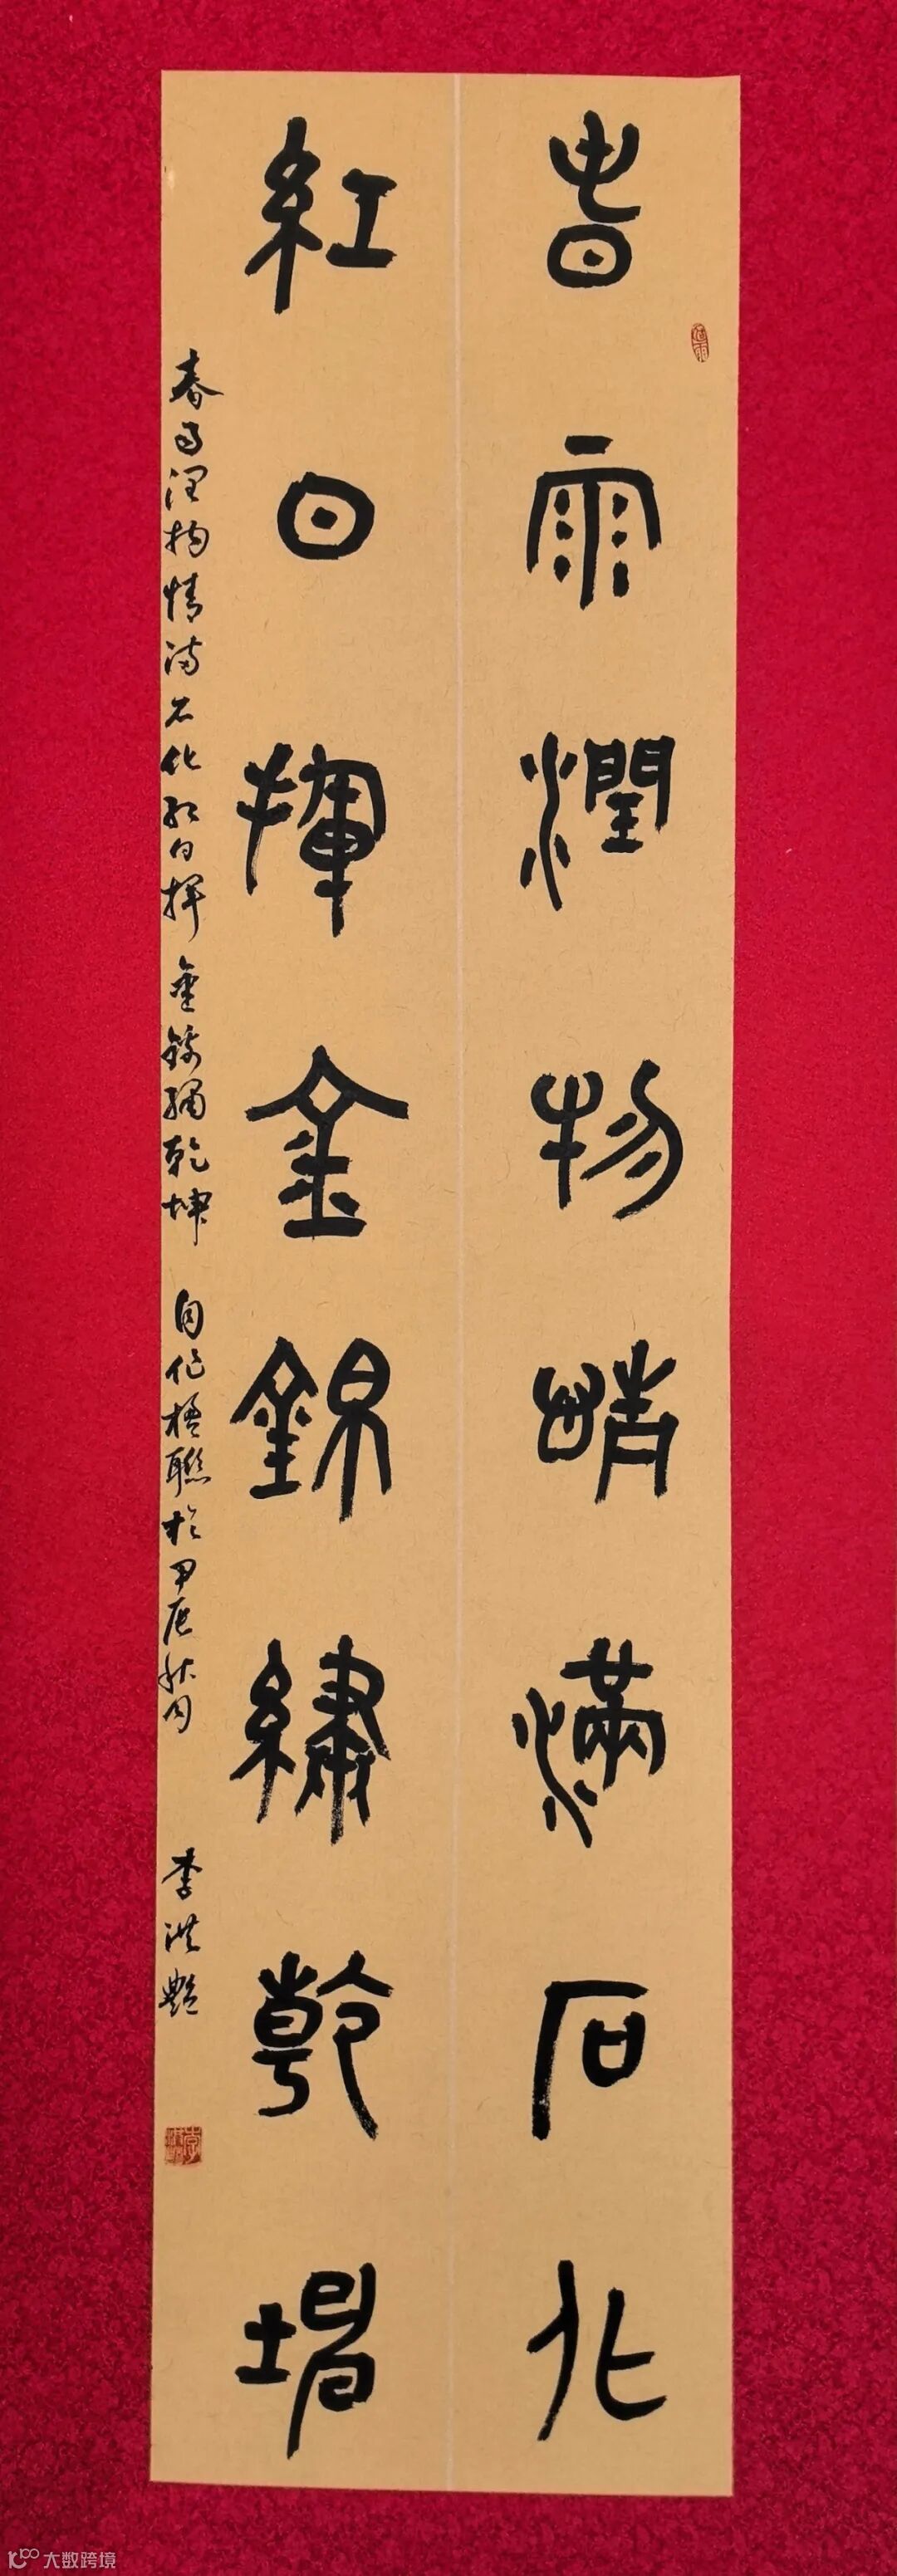 春雨潤物情滿石化
紅日揮金錦繡乾坤
春雨潤物情滿石化紅日揮金錦繡乾坤 自作楹聯於甲辰秋月 李洪艷
大数跨境